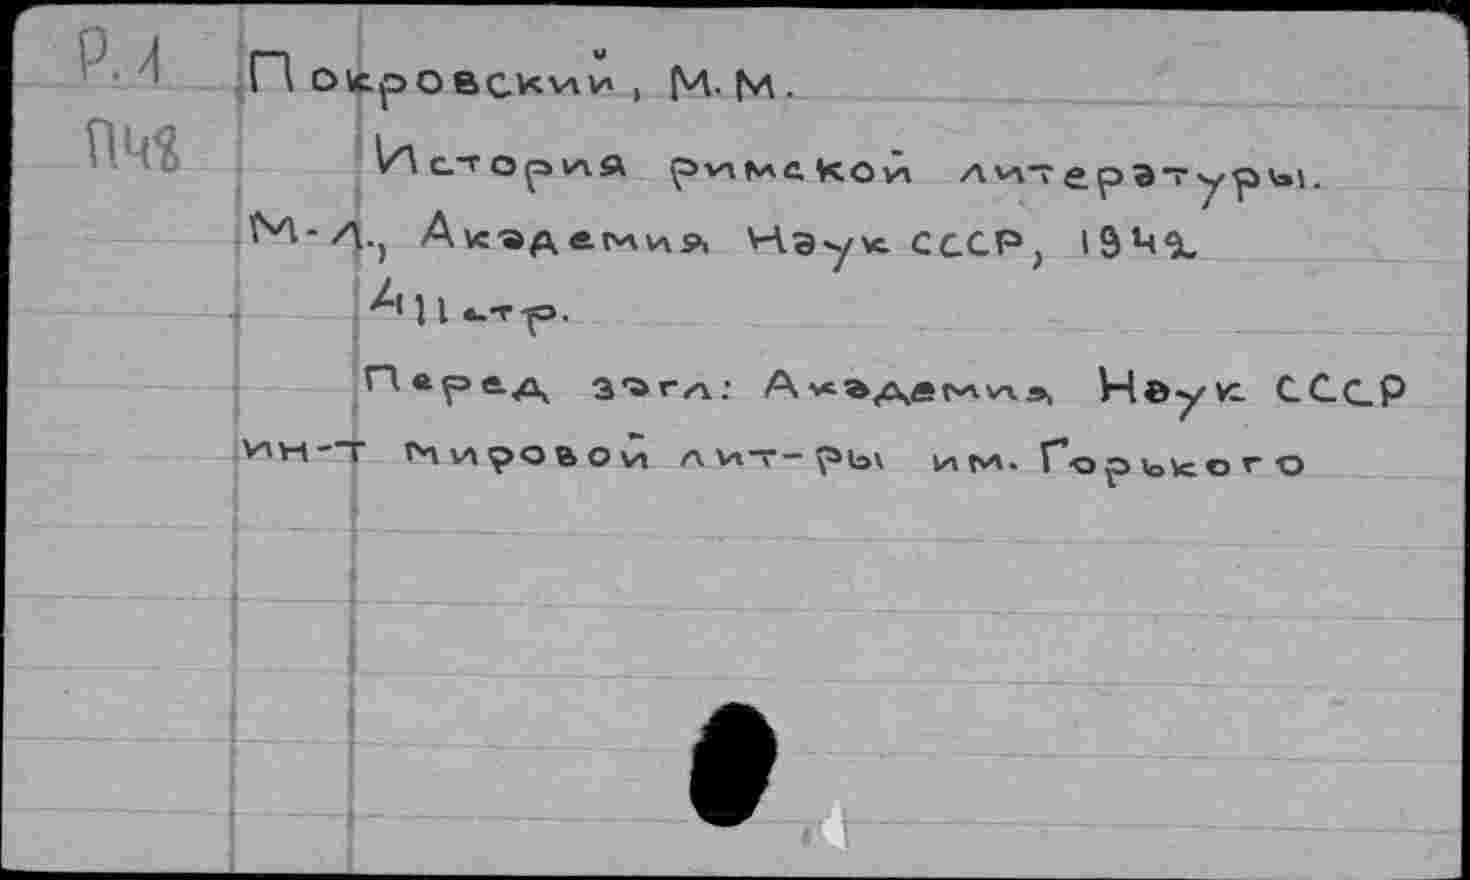 Р.1
П48
Покровский, М.М.
История римской литературы.
М-Л., Академия Наук СССР, 1942
411 стр.
Перед загл: Академия Наук СССР
ин-т мировой лит-ры им. Горького